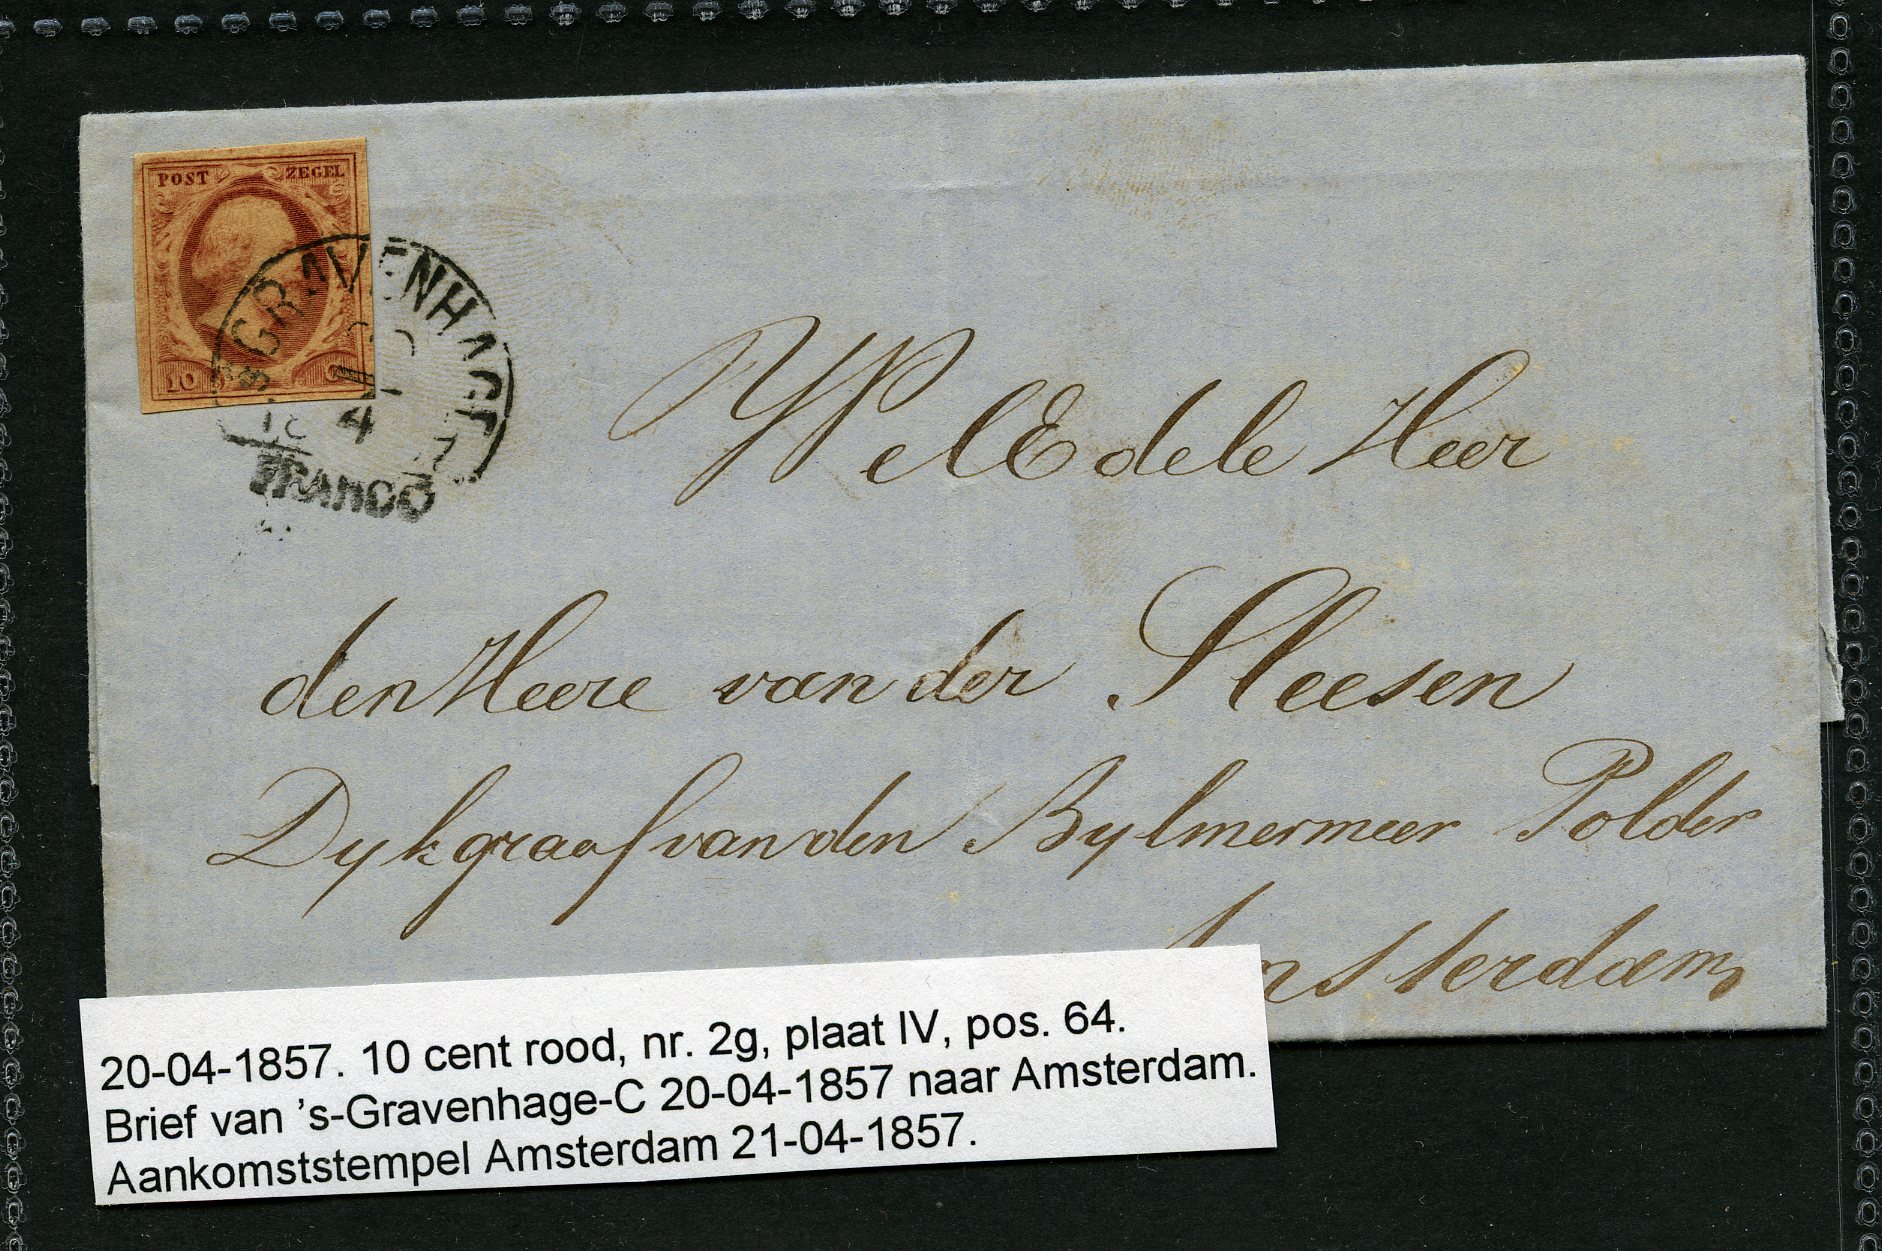 POST ZEGEL
10 C
'sGRAVENHAGE
20
4
FRANCO
WelEdele Heer
den Heere van der Sleesen
Dykgraaf van den Bylmermeer Polder
Amsterdam,
20-04-1857. 10 cent rood, nr. 2g, plaat IV, pos. 64.
Brief van ’s-Gravenhage-C 20-04-1857 naar Amsterdam.
Aankomststempel Amsterdam 21-04-1857.